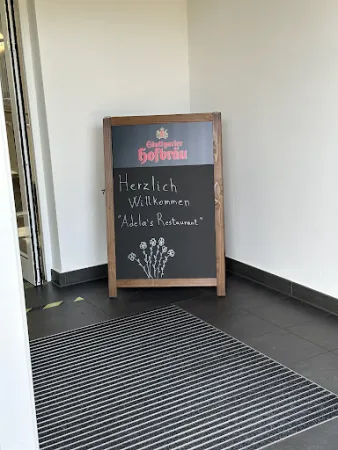 Stuttgarter
Hofbräu
Herzlich
Willkommen
"Adela's Restaurant"